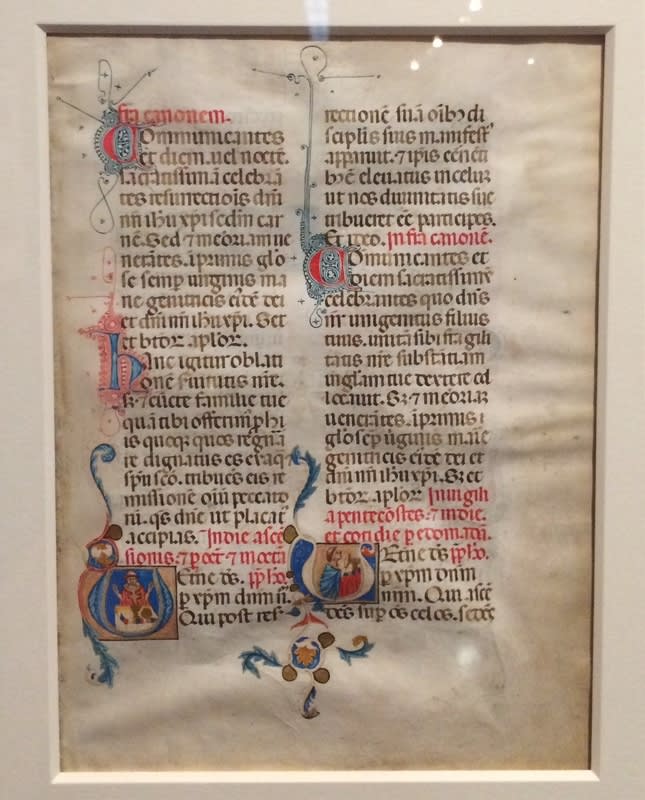 fra canonem.
Communicantes
et diem. uel noctē.
sacratissimā celebrā
tes resurrectiōis dn̄i
nr̄i ih̄u xp̄i scd̄m car
nē. Sed ⁊ meōriam ue
nerātes. īprimis glō
se semp̄ uirginis ma
rie genitricis eidē dei
et dn̄i nr̄i ih̄u xp̄i. Set
et btōr aplōr.
Hanc igitur oblati
onē seruitutis nrē.
s; ⁊ cūcte familie tue
quā tibi offerim' p̱ hi
is quoq; quos regn̄a
re dignatus es ex aq̄
sp̄u scō. tribuēs eis re
missionē oīū peccato
rū. qs̄ dn̄e ut placat'
accipias. In die ascē
sionis. ⁊ p̱ oct̄. ⁊ in octā
Eterne d̄s. p̄phō.
p̱ xp̄m dnm̄ nr̄.
Qui post res
rectionē suā oīb; di
scipulis suis manifest'
apparuit. ⁊ ip̄is cernēti
b; ē eleuatus in celuȝ
ut nos diuinitatis sue
tribueret eē participes.
Et ideo. Infra canonē.
Comunicantes et
diem sacratissimū
celebrantes quo dn̄s
nr̄ unigenitus filius
tuus. unitā sibi fragili
tatis nrē substātiam
in glām tue dextere col
locauit. S; ⁊ meōriaȝ
uenerātes. īprimis
glōse sēp ūginis marie
genitricis eidē dei et
dn̄i nr̄i ih̄u xp̄i. S; et
btōr. aplōr In uigili
a pentecostes. ⁊ in die.
et cotidie p̱ ebdomadā.
Eterne d̄s p̄phō.
p̱ xp̄m dnm̄
nrm̄. Qui ascē
dēs sup̱ oēs celos. sedēs